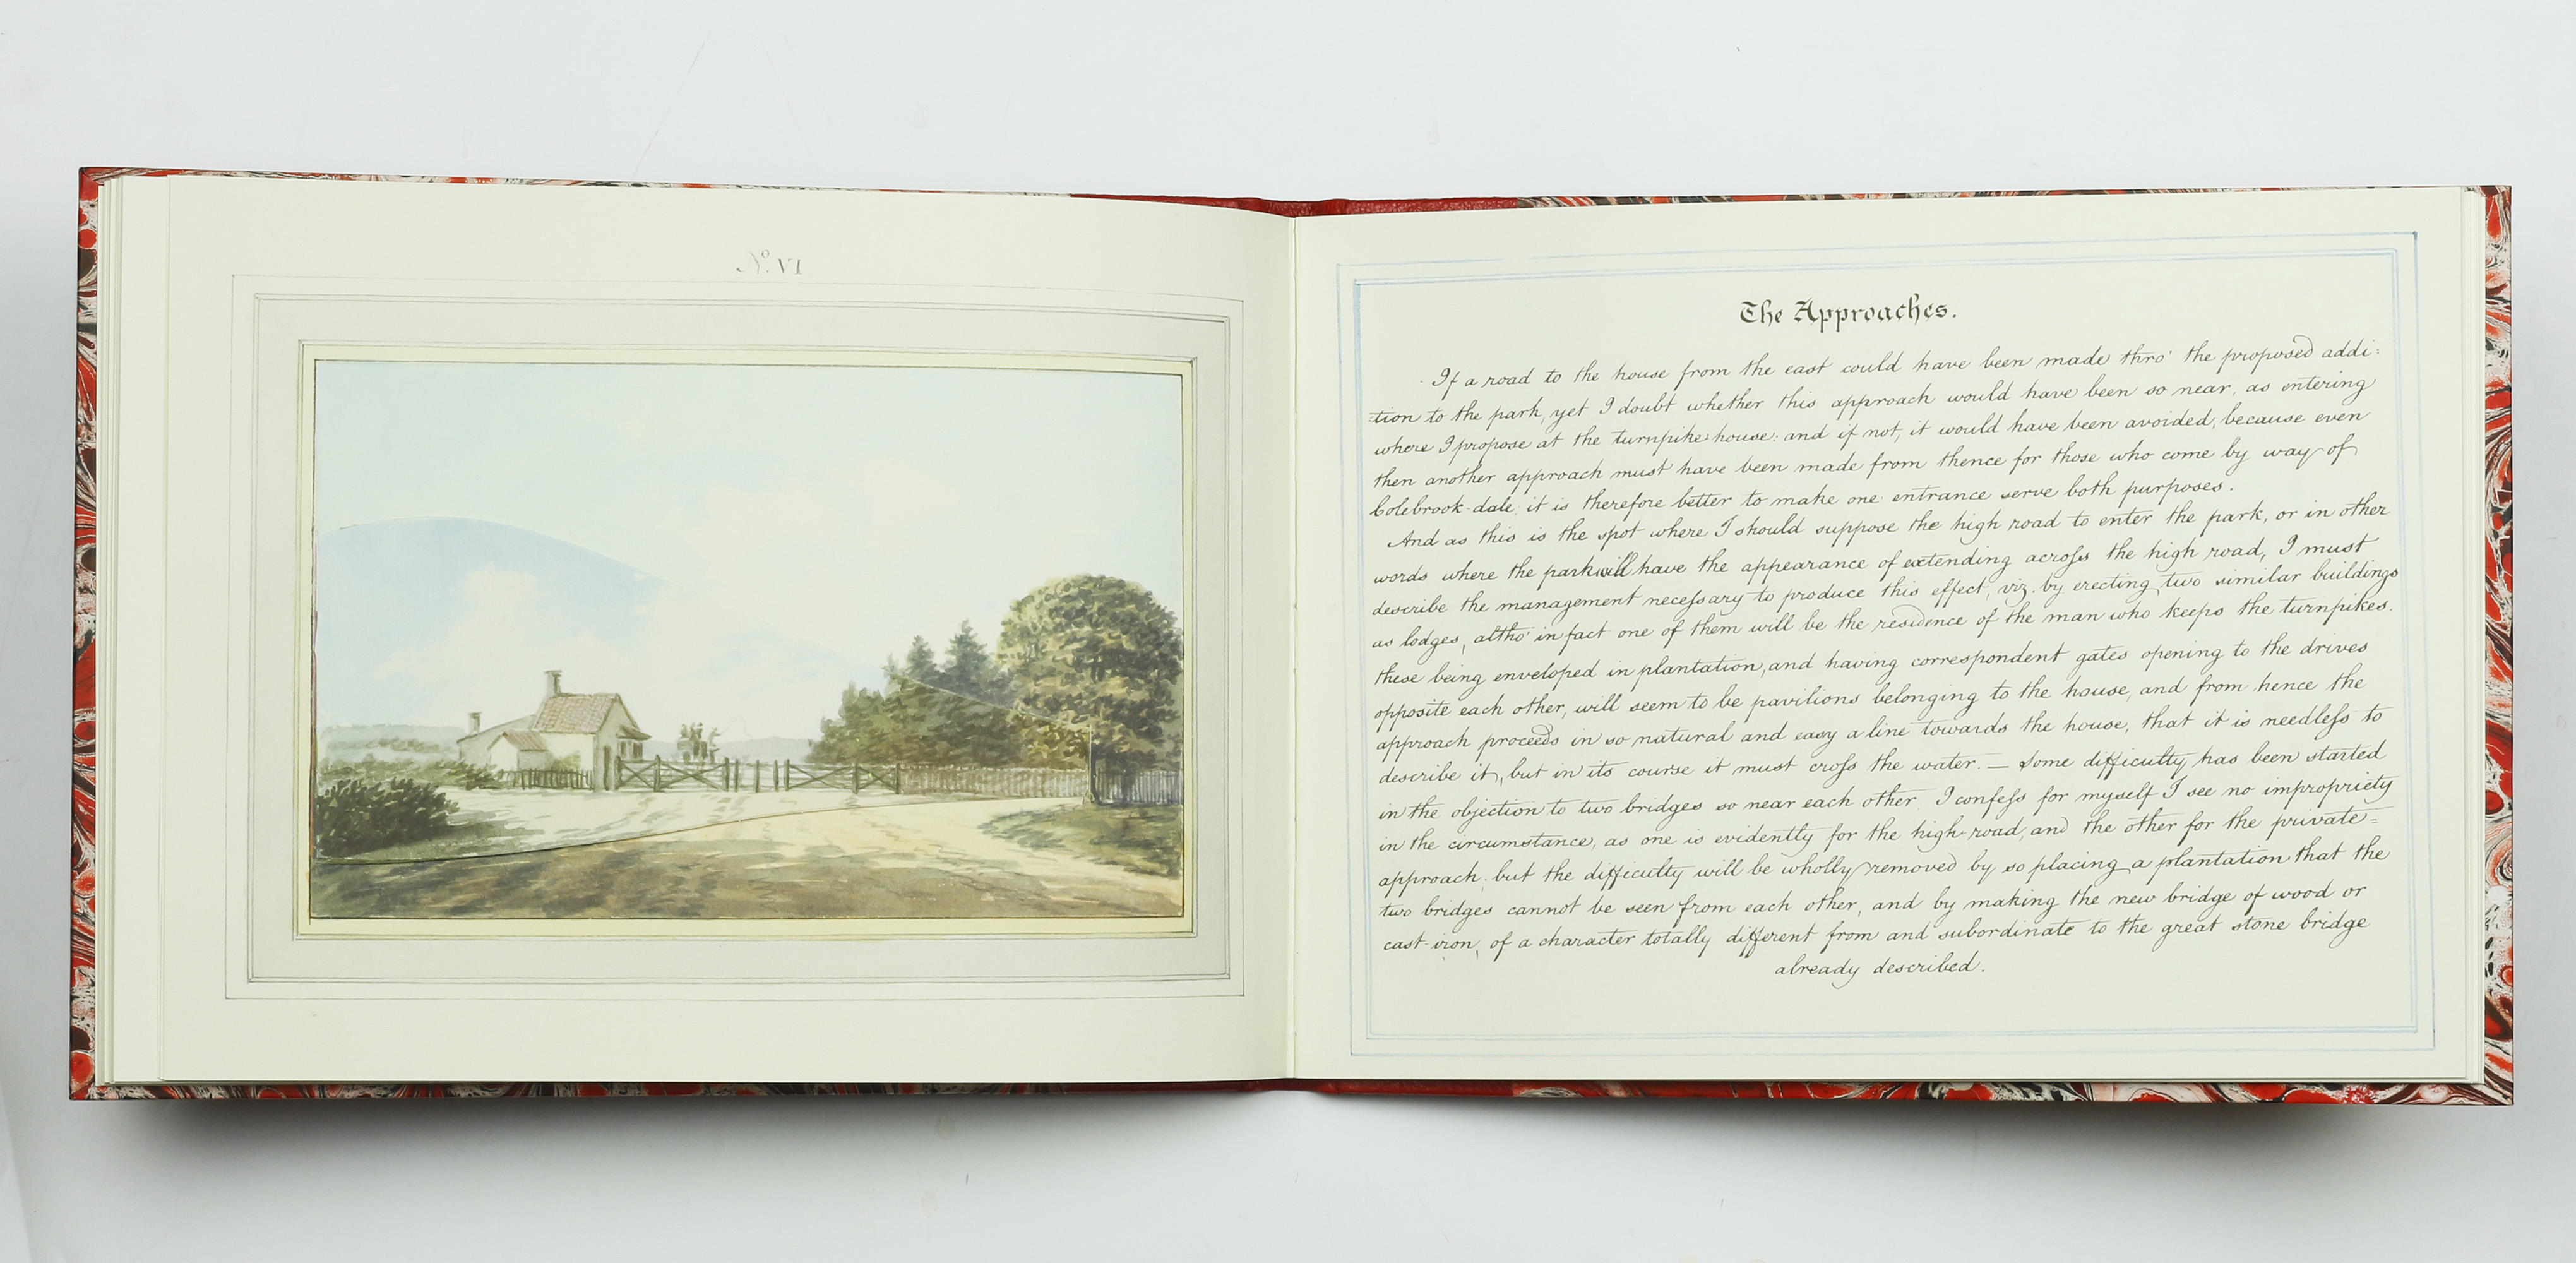 No. VI
The Approaches.
If a road to the house from the east could have been made thro' the proposed addi:
:tion to the park, yet I doubt whether this approach would have been so near, as entering
where I propose at the turnpike house: and if not, it would have been avoided, because even
then another approach must have been made from thence for those who come by way of
Colebrook-dale; it is therefore better to make one entrance serve both purposes.
And as this is the spot where I should suppose the high road to enter the park, or in other
words where the park will have the appearance of extending acroſs the high road, I must
describe the management neceſsary to produce this effect, viz. by erecting two similar buildings
as lodges, altho' in fact one of them will be the residence of the man who keeps the turnpikes.
these being enveloped in plantation, and having correspondent gates opening to the drives
opposite each other, will seem to be pavilions belonging to the house, and from hence the
approach proceeds in so natural and easy a line towards the house, that it is needleſs to
describe it, but in its course it must croſs the water. — Some difficulty has been started
in the objection to two bridges so near each other. I confeſs for myself I see no impropriety
in the circumstance, as one is evidently for the high-road, and the other for the private=
approach; but the difficulty will be wholly removed by so placing a plantation that the
two bridges cannot be seen from each other, and by making the new bridge of wood or
cast-iron, of a character totally different from and subordinate to the great stone bridge
already described.